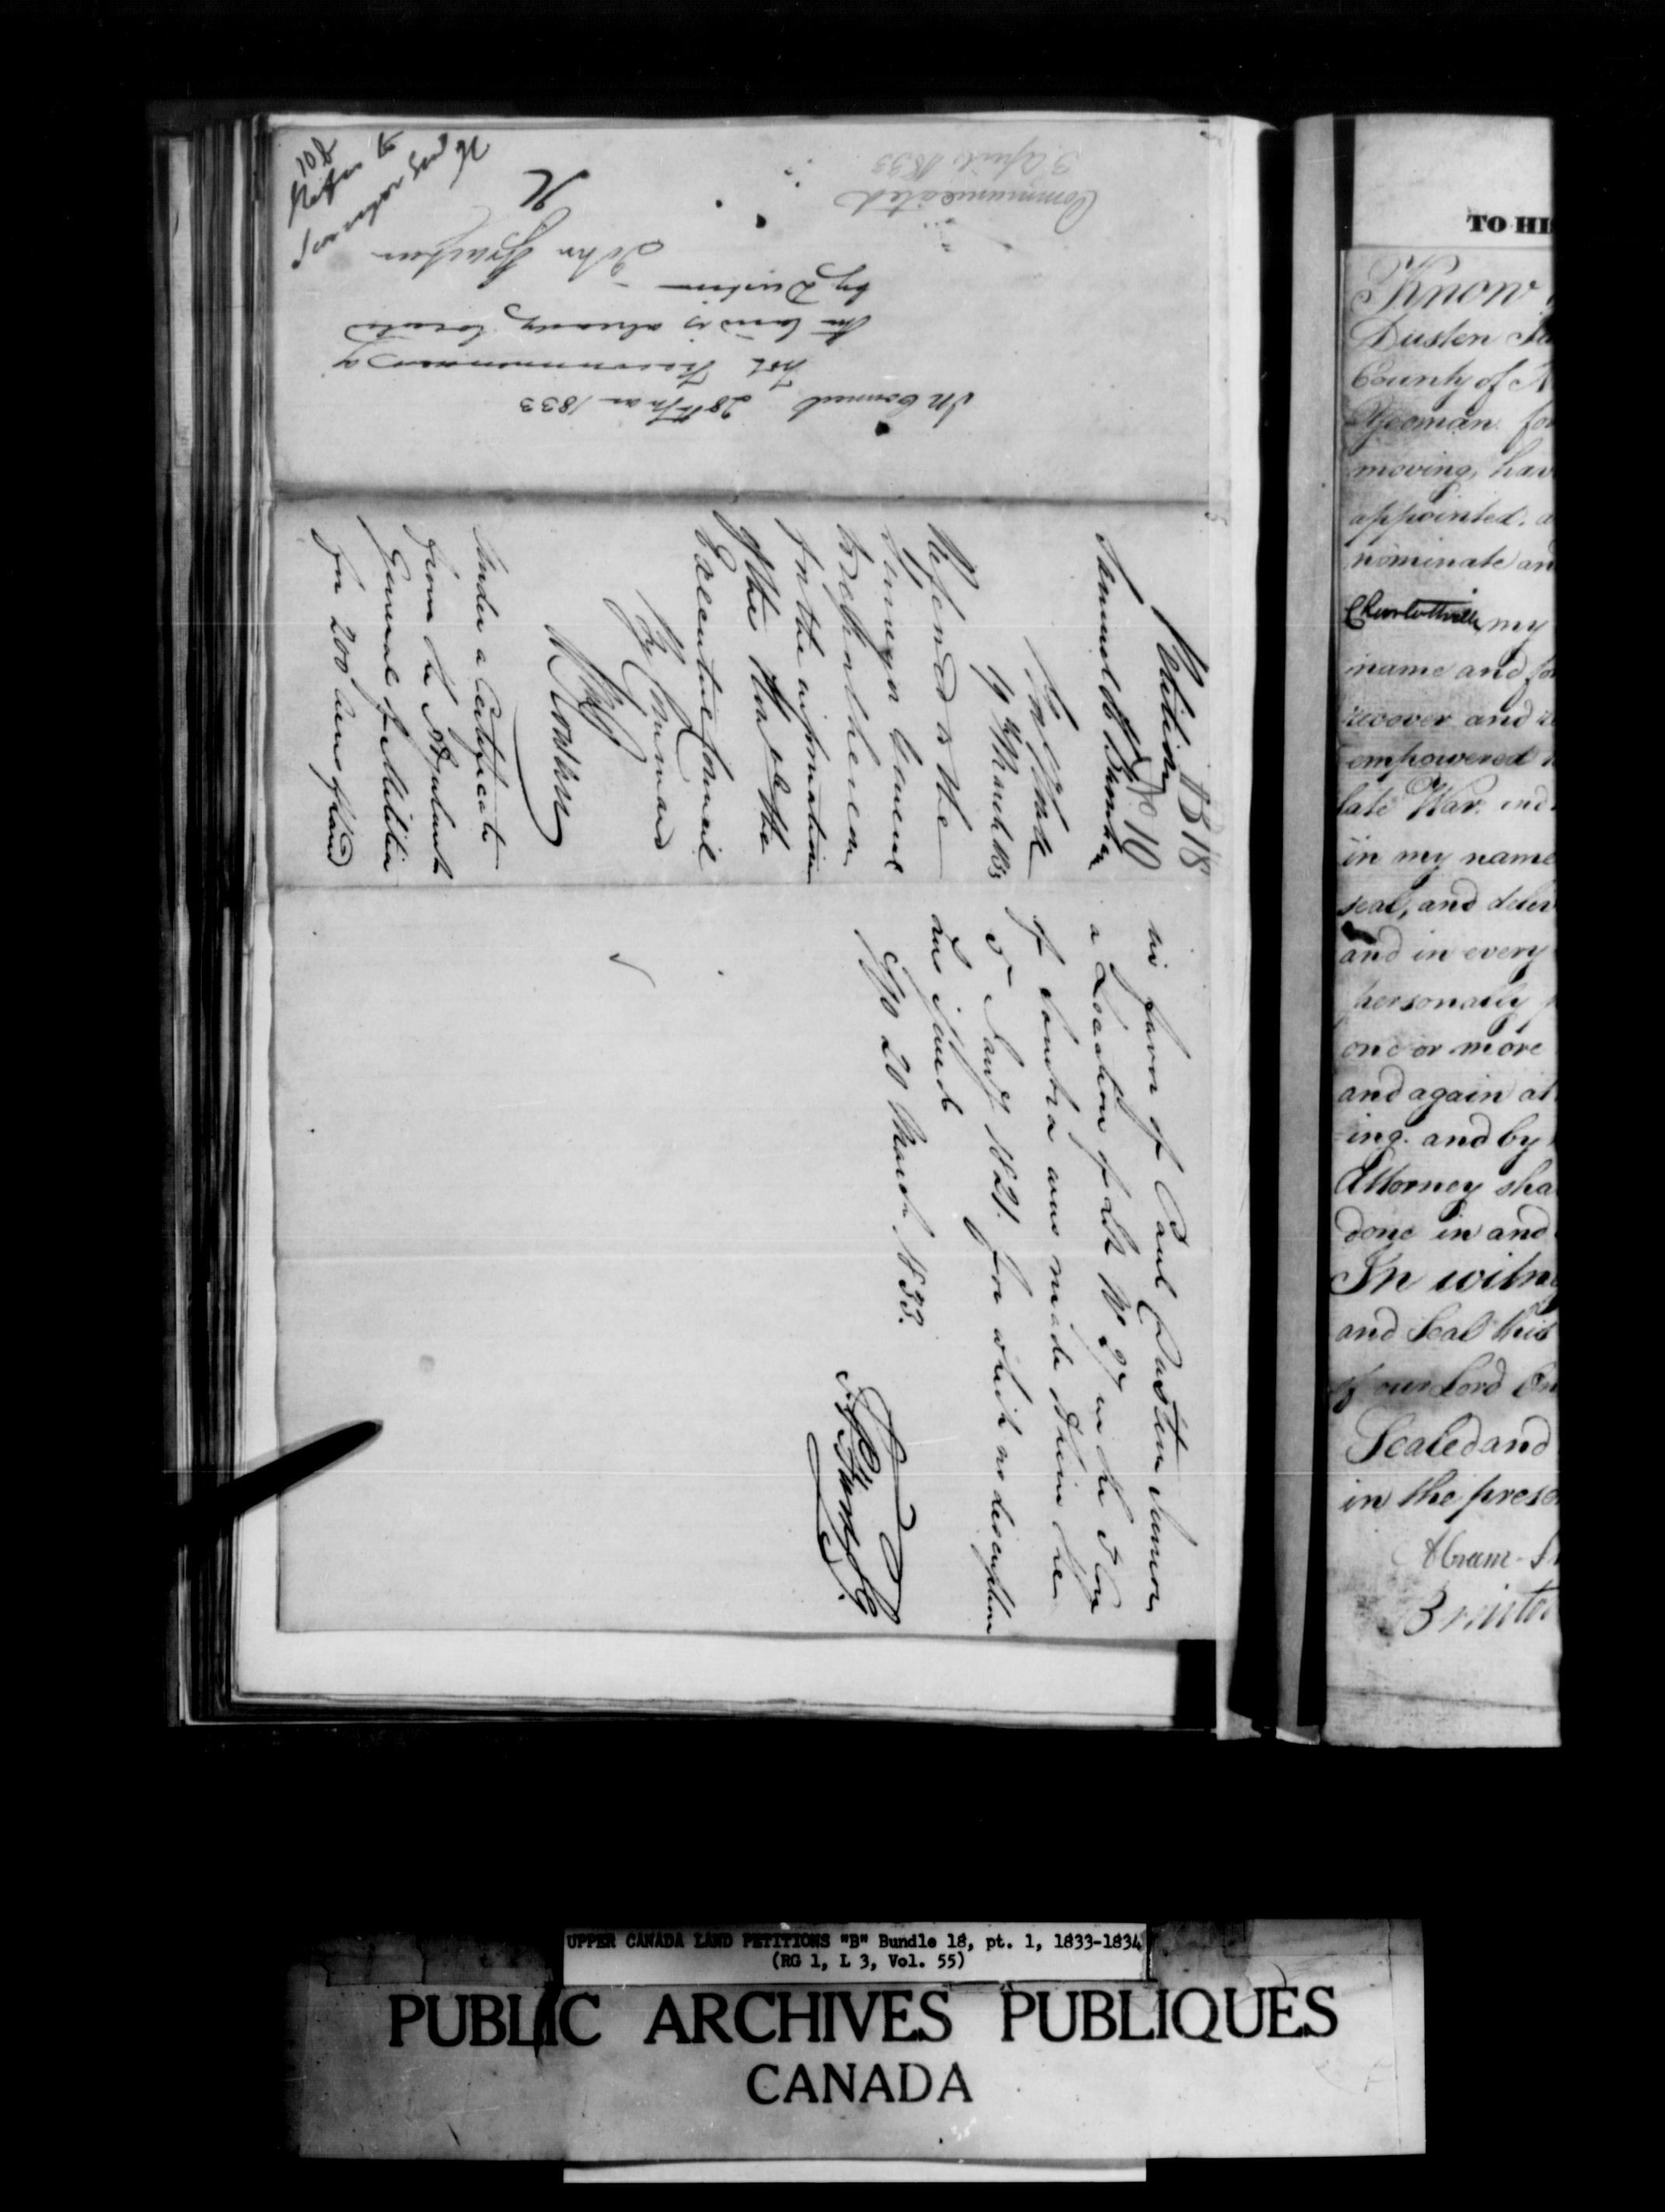 Communicated
3 April 1833
In Council 28th Mar 1833
Not Recommended
the land is already located
by Dustin
John
Refer to
Surveyor Genl
B 18
Petition No 10
Samuel
19 March 1833
Referred to the
Surveyor General
to report hereon
for the information
of the Honble the
Executive Council
By Command
Under a Certificate
from the Adjutant
General of Militia
for 200 acres of land
in favor of Paul Dusten Senior
a Location of Lot No 27 in the 5 Con
of Sombra was made
5 Jany 1821. for which no description
has issued
SGO 20 March 1833.
TO HI
Know
Dusten
County of
Yeoman for
moving, hav
appointed, a
nominate an
Charlotteville my
name and fo
recover and
empowered
late War. ind
in my name
seal, and deliv
and in every
personally
one or more
and again at
ing. and by
Attorney sha
done in and
In witne
and Seal this
of our Lord On
Sealed and
in the prese
Abram
UPPER CANADA LAND PETITIONS "B" Bundle 18, pt. 1, 1833-1834
(RG 1, L 3, Vol. 55)
PUBLIC ARCHIVES PUBLIQUES
CANADA